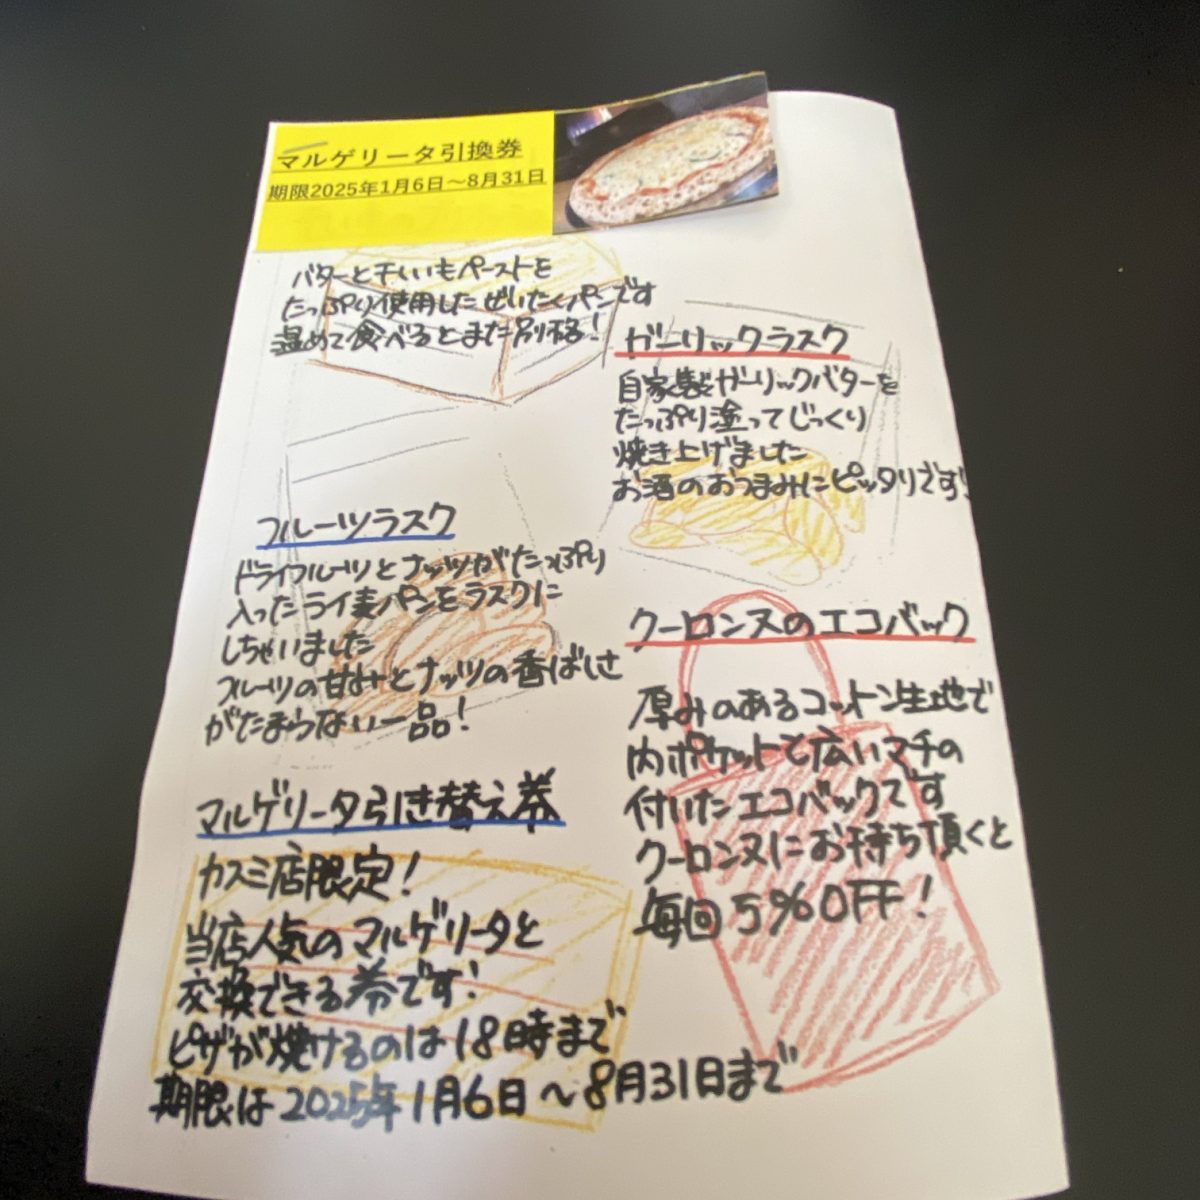 マルゲリータ引換券
期限2025年1月6日～8月31日
バターと干しいもペーストを
たっぷり使用したぜいたくパンです
温めて食べるとまた別格！
ガーリックラスク
自家製ガーリックバターを
たっぷり塗ってじっくり
焼き上げました
お酒のおつまみにピッタリです！
フルーツラスク
ドライフルーツとナッツがたっぷり
入ったライ麦パンをラスクに
しちゃいました
フルーツの甘みとナッツの香ばしさ
がたまらない一品！
クーロンヌのエコバック
厚みのあるコットン生地で
内ポケットと広いマチの
付いたエコバックです
クーロンヌにお持ち頂くと
毎回5%OFF！
マルゲリータ引き替え券
カスミ店限定！
当店人気のマルゲリータと
交換できる券です！
ピザが焼けるのは18時まで
期限は2025年1月6日～8月31日まで